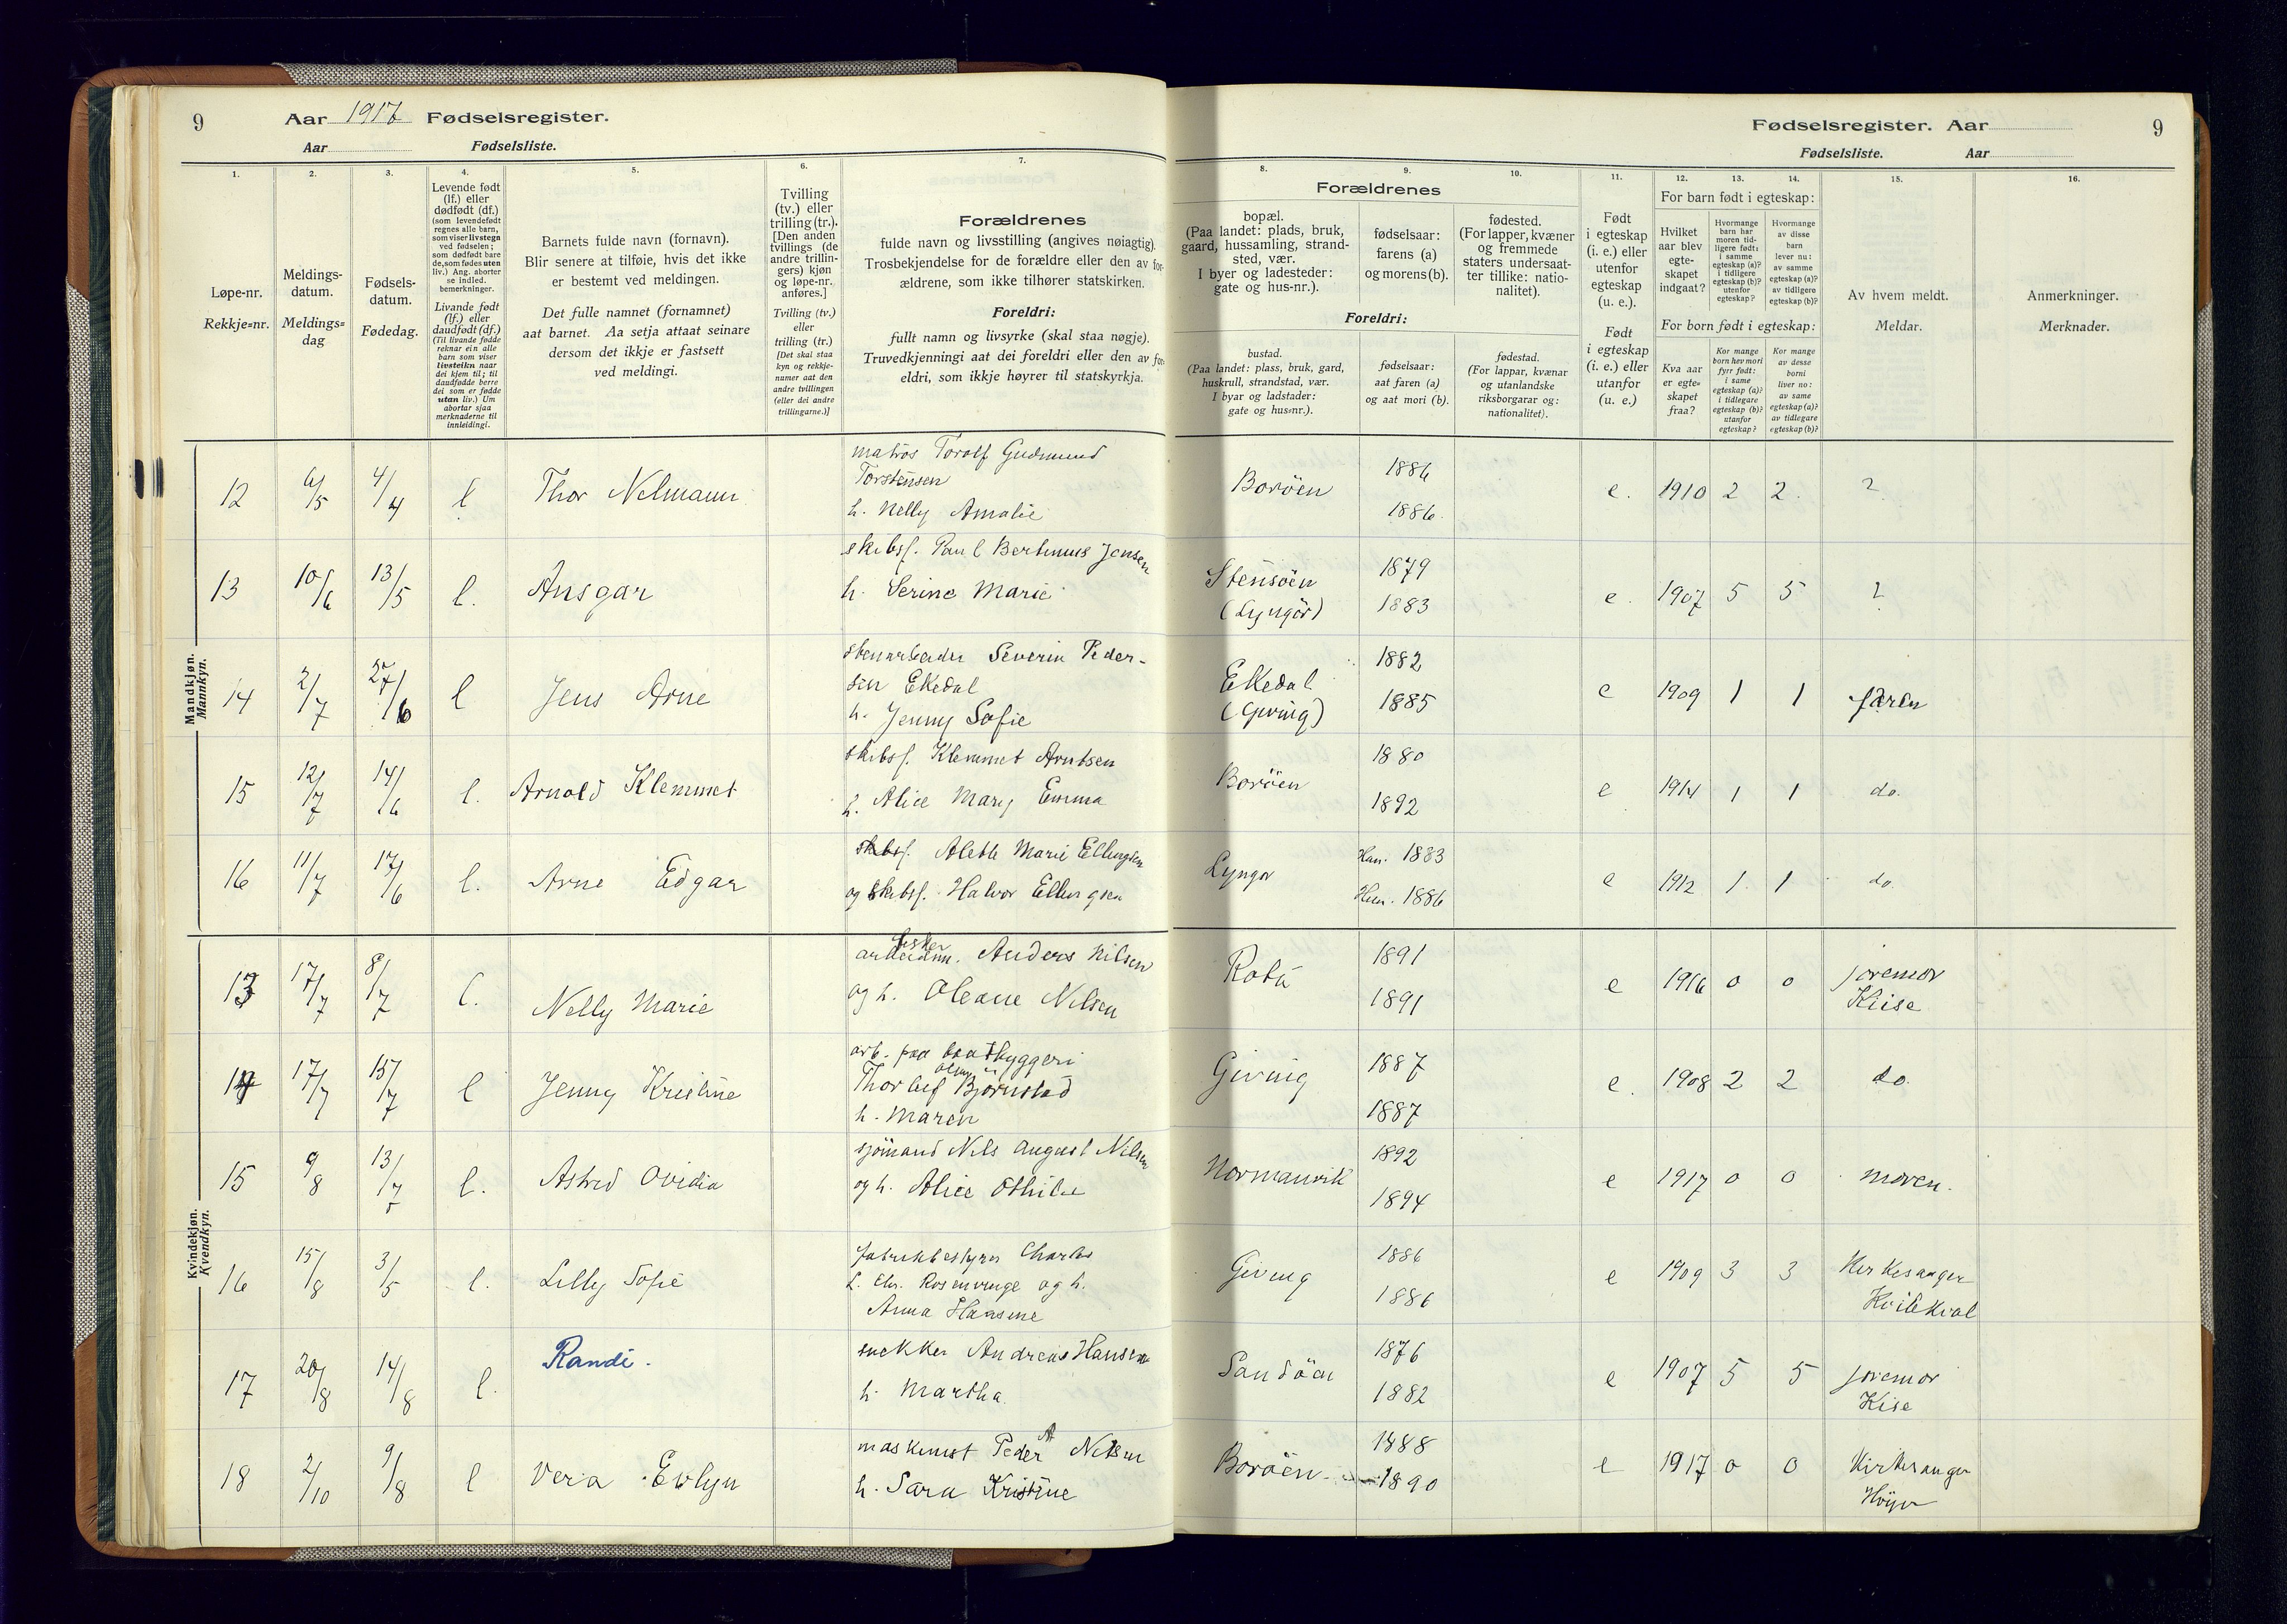 9
Aar 1917 Fødselsregister.
Aar Fødselsliste.
1.
2.
3.
4.
5.
6.
7.
Løpe-nr.
Rekkje=nr.
Meldings-
datum.
Meldings=
dag
Fødsels-
datum.
Fødedag.
Levende født
(lf.) eller
dødfødt (df.)
(som levendefødt
regnes alle barn,
som viser livstegn
ved fødselen;
som dødfødt bare
de, som fødes uten
liv.) Ang. aborter
se indled.
bemerkninger.
Livande født
(lf.) eller
daudfødt (df.)
(Til livande fødde
reknar ein alle
barn som viser
livsteikn naar
dei kjem til; til
daudfødde berre
dei som er fødde
utan liv.) Um
abortar sjaa
merknaderne til
innleidingi.
Barnets fulde navn (fornavn).
Blir senere at tilføie, hvis det ikke
er bestemt ved meldingen.
Det fulle namnet (fornamnet)
aat barnet. Aa setja attaat seinare
dersom det ikkje er fastsett
ved meldingi.
Tvilling
(tv.) eller
trilling (tr.).
[Den anden
tvillings (de
andre trillin-
gers) kjøn
og løpe-nr.
anføres.]
Tvilling (tv.)
eller
trilling (tr.)
[Det skal staa
kyn og rekkje-
numer aat den
andre tvillingen
(eller dei andre
trillingarne.)]
Forældrenes
fulde navn og livsstilling (angives nøiagtig).
Trosbekjendelse for de forældre eller den av for-
ældrene, som ikke tilhører statskirken.
Foreldri:
fullt namn og livsyrke (skal staa nøgje).
Truvedkjenningi aat dei foreldri eller den av for-
eldri, som ikkje høyrer til statskyrkja.
Mandkjøn.
Mannkyn.
12 6/5 4/4 l Thor Nelmann
matros Torolf Gudmund
Torstensen
h. Nelly Amalie
13 10/6 13/5 l. Ansgar
skibsf. Paul Bertinus Jensen
h. Serine Marie
14 2/7 27/6 l Jens Arne
stenarbeider Severin Peder-
sen Ekedal
h. Jenny Sofie
15 12/7 14/6 l. Arnold Klemmet
skibsf. Klemmet Arntsen
h. Alice Mary Emma
16 11/7 17/6 l. Arne Edgar
skibsf. Aletle Marie Ellingsen
og skibsf. Halvor Ellingsen
Kvindekjøn.
Kvendkyn.
13 17/7 8/7 l. Nelly Marie
fisker
arbeidsm. Anders Nilsen
og h. Oleane Nilsen
14 17/7 15/7 l Jenny Kristine
arb. paa baatbyggeri
Thorleif Olsen Bjørnstad
h. Maren
15 9/8 13/7 l. Astrid Ovidia
sjømand Nils August Nilsen
og h. Alice Othilie
16 15/8 3/5 l. Lilly Sofie
fabrikbestyrer Charles
L. Chr. Rosenvinge og h.
Anna
17 20/8 14/8 l. Randi.
snekker Andreas Hansen
h. Martha
18 2/10 9/8 l Vera Evlyn
maskinist Peder A Nilsen
h. Sara Kristine
Fødselsregister. Aar 9
Fødselsliste. Aar
8.
9.
10.
11.
12.
13.
14.
15.
16.
Forældrenes
bopæl.
(Paa landet: plads, bruk,
gaard, hussamling, strand-
sted, vær.
I byer og ladesteder:
gate og hus-nr.).
fødselsaar:
farens (a)
og morens (b).
fødested.
(For lapper, kvæner
og fremmede
staters undersaat-
ter tillike: natio-
nalitet).
Foreldri:
bustad.
(Paa landet: plass, bruk, gard,
huskrull, strandstad, vær.
I byar og ladstader:
gate og hus=nr.).
fødselsaar:
aat faren (a)
og aat mori (b).
fødestad.
(For lappar, kvænar
og utanlandske
riksborgarar og:
nationalitet).
Født
i egteskap
(i. e.) eller
utenfor
egteskap
(u. e.).
Født
i egteskap
(i. e.) eller
utanfor
(u. e.)
For barn født i egteskap:
Hvilket
aar blev
egte-
skapet
indgaat?
Hvormange
barn har
moren tid-
ligere født:
i samme
egteskap (a)?
i tidligere
egteskap (b)?
utenfor
egteskap?
Hvormange
av disse
barn
lever nu:
av samme
egteskap (a)?
av tidligere
egteskap (b)?
For born født i egteskap:
Kva aar
er egte=
skapet
fraa?
Kor mange
born hev mori
fyrr født:
i same
egteskap (a)?
i tidlegare
egteskap (b)?
utanfor
egteskap?
Kor mange
av desse
borni
liver no:
av same
egteskap (a)?
av tidlegare
egteskap (b)?
Av hvem meldt.
Meldar.
Anmerkninger.
Merknader.
Borøen 1886 1886. e. 1910 2 2. ?
Stensøen (Lyngør) 1879 1883 e. 1907 5 5 ?
Ekedal (Gjeving) 1882 1885 e 1909 1 1 faren
Borøen 1880 1892 e 1914 1 1 do.
Lyngør Han. 1883 Hun. 1886 e 1912 1 1 do.
1891 1891 e 1916 0 0 joremor Kiise
Giving 1887 1887 e. 1908 2 2 do.
Normanvik 1892 1894 e 1917 0 0 moren.
Giving 1886 1886 e 1909 3 3 Kirkesanger Kvilekval
Sandøen 1876 1882 e 1907 5 5 joremor Kise
Borøen 1888 1890 e 1917 0 0 Kirkesanger